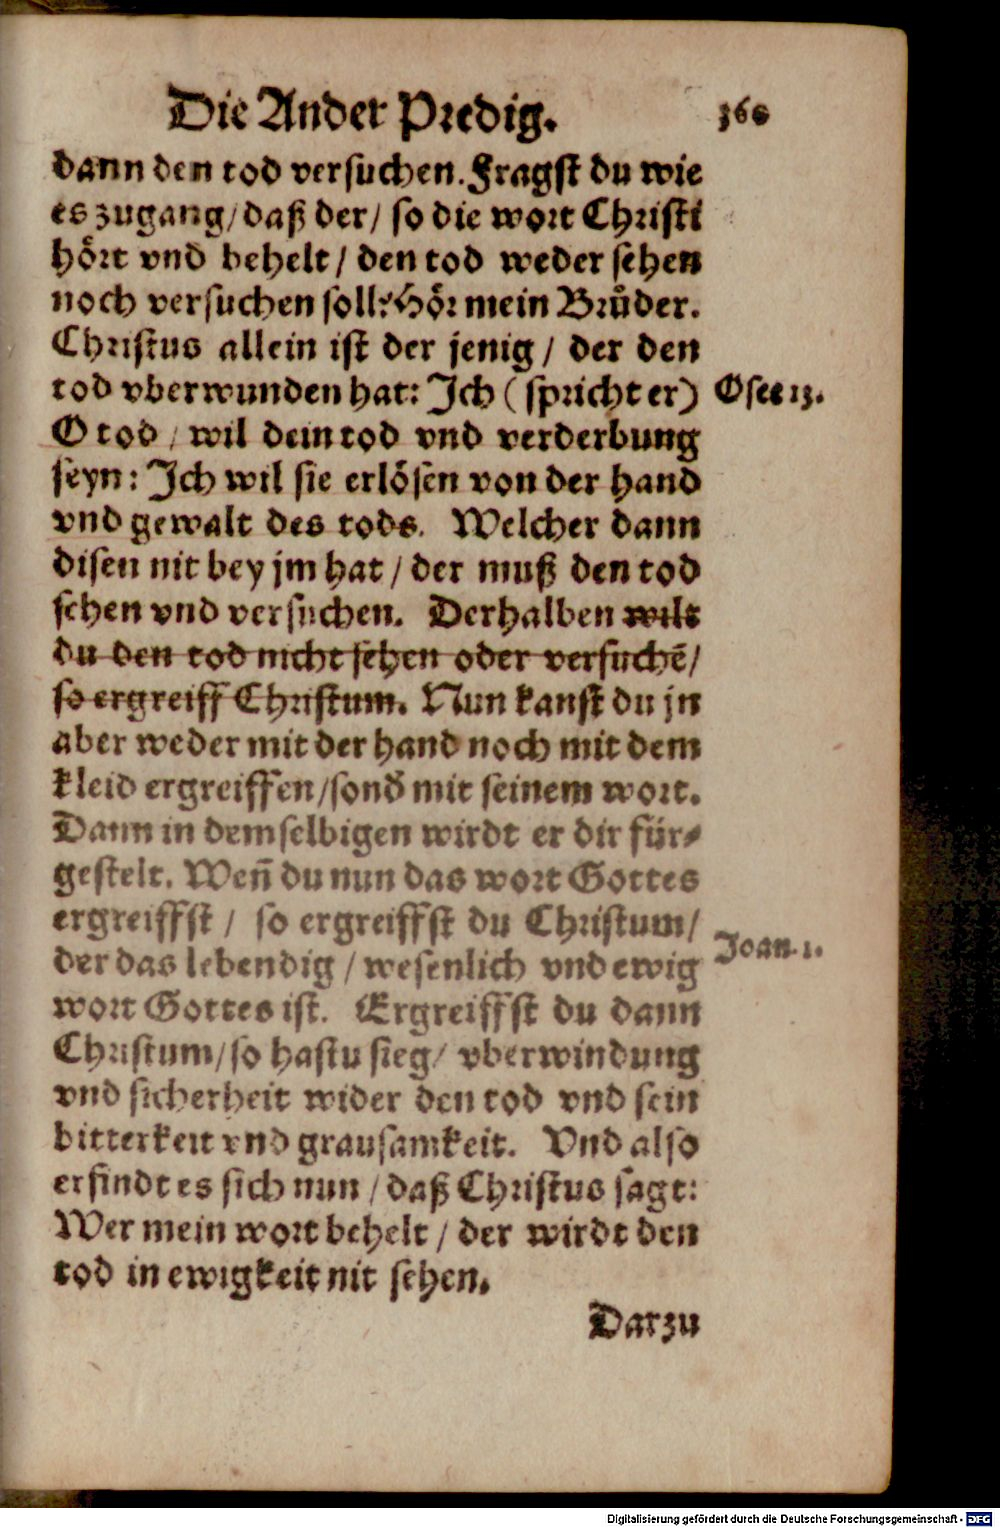 Die Ander Predig. 360
dann den tod versuchen. Fragst du wie
es zugang/ daß der/ so die wort Christi
hört vnd behelt/ den tod weder sehen
noch versuchen soll? Hör mein Brůder.
Christus allein ist der jenig/ der den
tod vberwunden hat: Ich (spricht er) Osee 13.
O tod/ wil dein tod vnd verderbung
seyn: Ich wil sie erlösen von der hand
vnd gewalt des tods. Welcher dann
disen nit bey jm hat/ der muß den tod
sehen vnd versuchen. Derhalben wilt
du den tod nicht sehen oder versuchẽ/
so ergreiff Christum. Nun kanst du jn
aber weder mit der hand noch mit dem
kleid ergreiffen/ sond̕ mit seinem wort.
Dann in demselbigen wirdt er dir für⸗
gestelt. Weñ du nun das wort Gottes
ergreiffst/ so ergreiffst du Christum/
der das lebendig/ wesenlich vnd ewig Joan. 1.
wort Gottes ist. Ergreiffst du dann
Christum/ so hastu sieg/ vberwindung
vnd sicherheit wider den tod vnd sein
bitterkeit vnd grausamkeit. Vnd also
erfindt es sich nun/ daß Christus sagt:
Wer mein wort behelt/ der wirdt den
tod in ewigkeit nit sehen.
Darzu
Digitalisierung gefördert durch die Deutsche Forschungsgemeinschaft - DFG